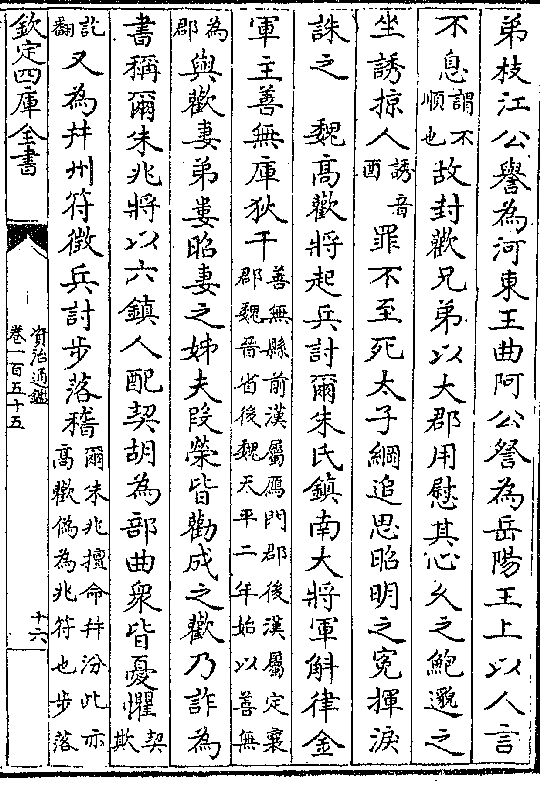 弟枝江公譽為河東王曲阿公詧為岳陽王上以人言
不息謂不順也故封歡兄弟以大郡用慰其心久之鮑邈之
坐誘掠人誘音酉罪不至死太子綱追思昭明之寃揮淚
誅之　魏髙歡將起兵討爾朱氏鎮南大將軍斛律金
軍主善無庫狄干善無縣前漢屬鴈門郡後漢屬定襄郡魏晉省後魏天平二年始以善無
為郡與歡妻弟婁昭妻之姊夫段榮皆勸成之歡乃詐為
書稱爾朱兆將以六鎮人配契胡為部曲衆皆憂懼契欺
訖翻又為并州符徵兵討步落稽爾朱兆擅命并汾此亦髙歡偽為兆符也步落
欽定四庫全書
資治通鑑
卷一百五十五
十六